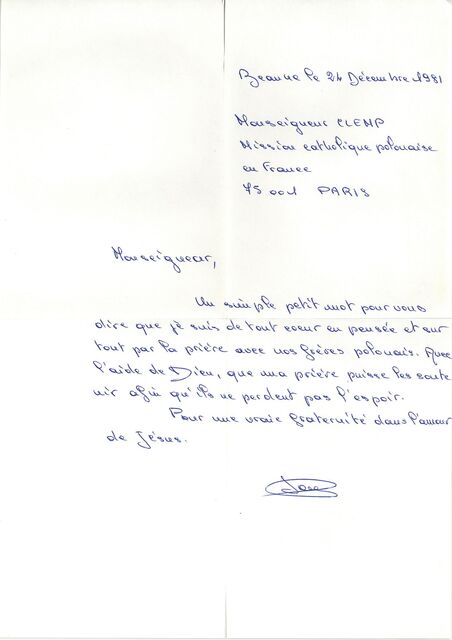 Beaune le 24 Décembre 1981
Monseigneur CLEMP
Mission catholique polonaise
en France
75 001 PARIS
Monseigneur,
Un simple petit mot pour vous
dire que je suis de tout coeur en pensée et sur
tout par la prière avec nos frères polonais. Avec
l'aide de Dieu, que ma prière puisse les soute
nir afin qu'ils ne perdent pas l'espoir.
Pour une vraie fraternité dans l'amour
de Jésus.